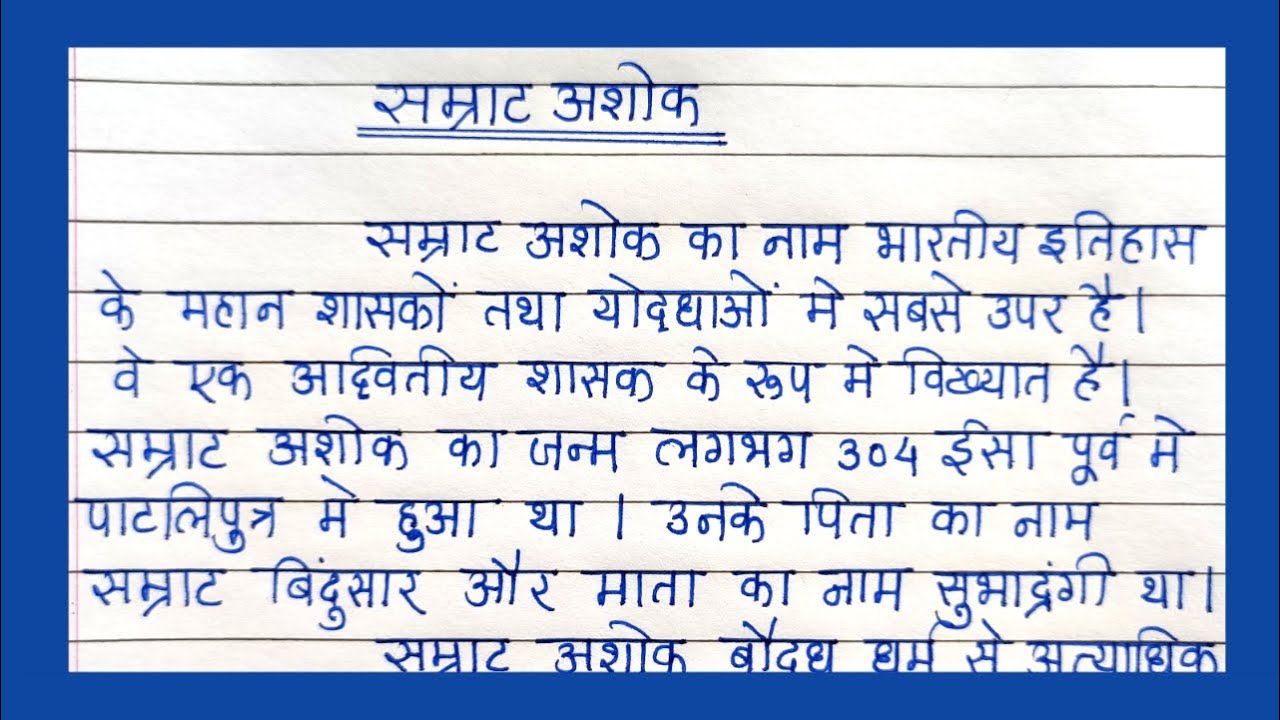 सम्राट अशोक
सम्राट अशोक का नाम भारतीय इतिहास
के महान शासकों तथा योद्धाओं मे सबसे उपर है।
वे एक अद्वितीय शासक के रूप मे विख्यात है।
सम्राट अशोक का जन्म लगभग 304 ईसा पूर्व मे
पाटलिपुत्र मे हुआ था । उनके पिता का नाम
सम्राट बिंदुसार और माता का नाम सुभाद्रंगी था।
सम्राट अशोक बौद्ध धर्म से अत्याधिक